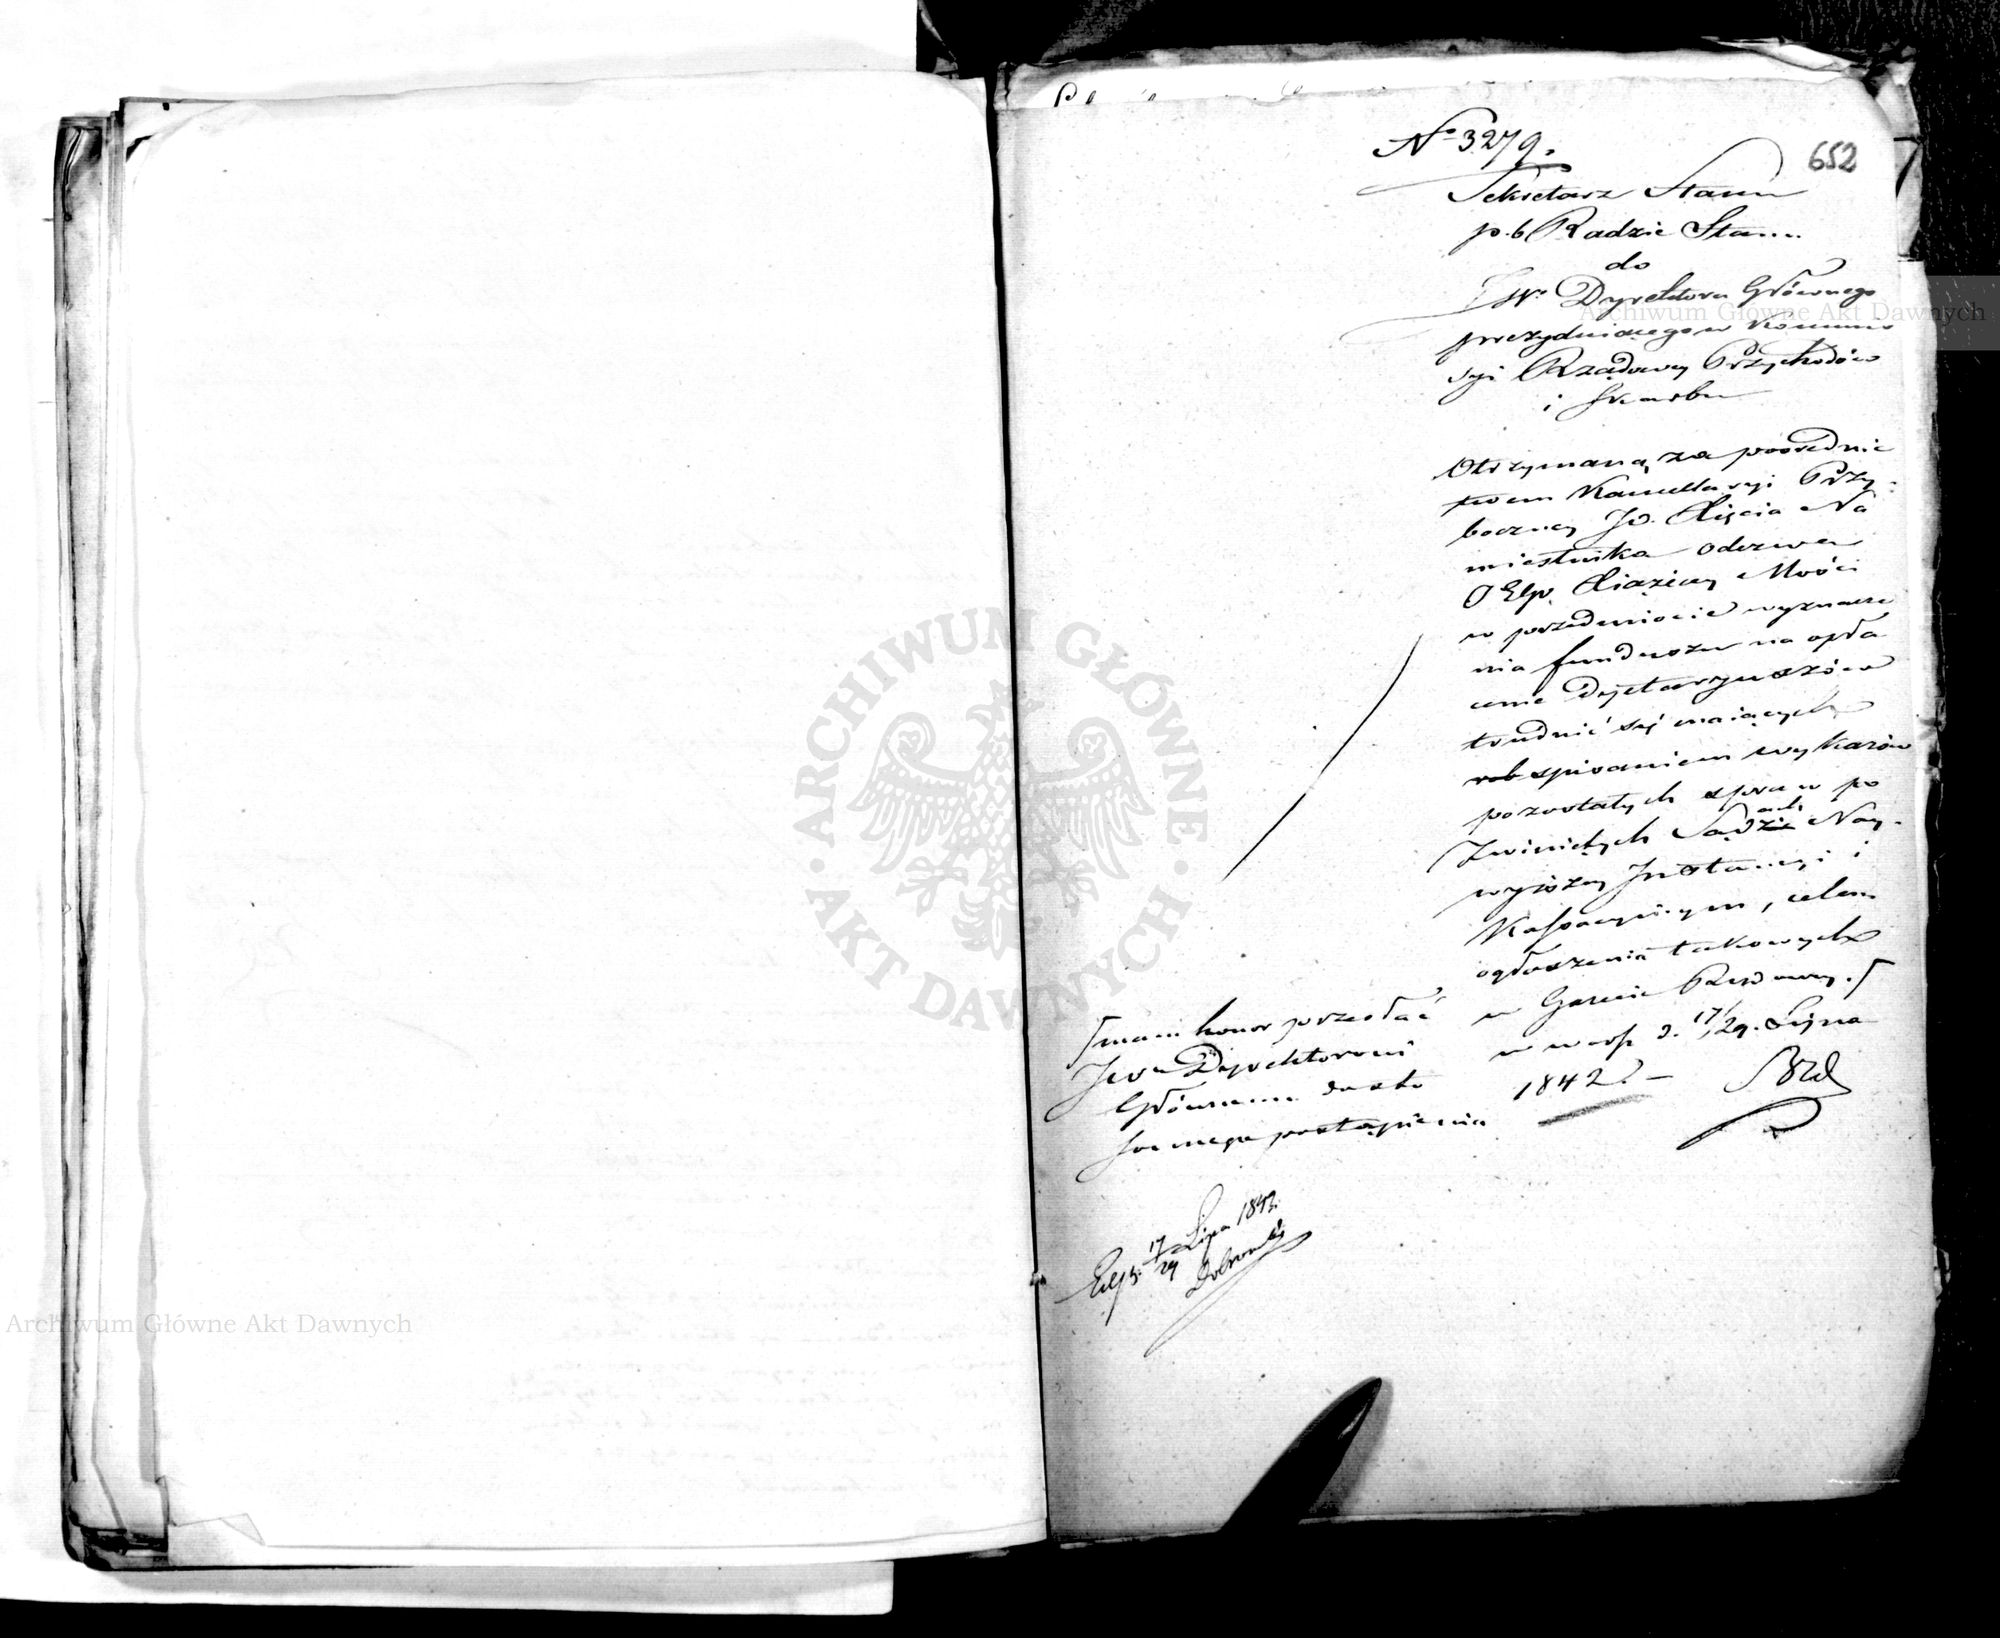 652
No 3279.
Sekretarz Stanu
p. b Radzie Stanu
do
JW. Dyrektora Głównego
prezyduiącego w Kommis
syi Rządowey Przychodów
i Skarbu
Otrzymaną za pośrednic
twem Kancellaryi Przy-
boczney JO. Xięcia Na
miestnika odezwę
Xiążęcey Mości
w przedmiocie wyznacze
nia funduszu na opła
cenie Dyetaryuszów
trudnić się maiących
spisaniem wykazów
pozostałych spraw po
zwiniętych Sądach Nay-
wyższey Instancyi i
Kassacyinym, celem
ogłoszenia takowych
w Gazecie Rządowey. ⌈
w Warsz d. 17/29. Lipca
1842 r. —
⌈mam honor przesłać
JW. Dyrektorowi
Głównemu do sto
sownego postąpienia
Exp. 17/29 Lipca 1842.
Archiwum Główne Akt Dawnych
Archiwum Główne Akt Dawnych
ARCHIWUM GŁÓWNE
AKT DAWNYCH